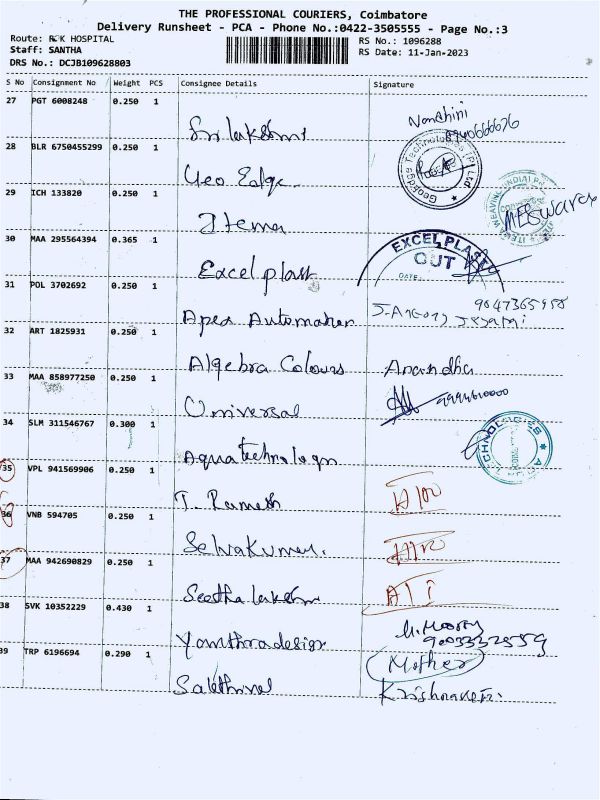 THE PROFESSIONAL COURIERS, Coimbatore
Delivery Runsheet - PCA - Phone No.:0422-3505555 - Page No.:3
Route: R K HOSPITAL
Staff: SANTHA
DRS No.: DCJB109628803
RS No.: 1096288
RS Date: 11-Jan-2023
S No Consignment No Weight PCS Consignee Details Signature
27 PGT 6008248 0.250 1
Sri lakshmi
28 BLR 6750455299 0.250 1
Geo Edge.
GeoEdge Technologies (P) Ltd
29 ICH 133820 0.250 1
Itema
30 MAA 295564394 0.365 1
Excel plast
EXCEL PLAST
OUT
DATE
31 POL 3702692 0.250 1
Apex Automaker
9047365958
32 ART 1825931 0.250 1
Algebra Colours Anandha
33 MAA 858977250 0.250 1
Universal
34 SLM 311546767 0.300 1
Aquatechnologs
TECHNOLOGIES
35 VPL 941569906 0.250 1
T. Ramesh
36 VNB 594705 0.250 1
Selvakumar.
37 MAA 942690829 0.250 1
Seetha lakshmi
38 SVK 10352229 0.430 1
Yanthradesign
39 TRP 6196694 0.290 1
Mother
Sakthivel
Krishnaveni